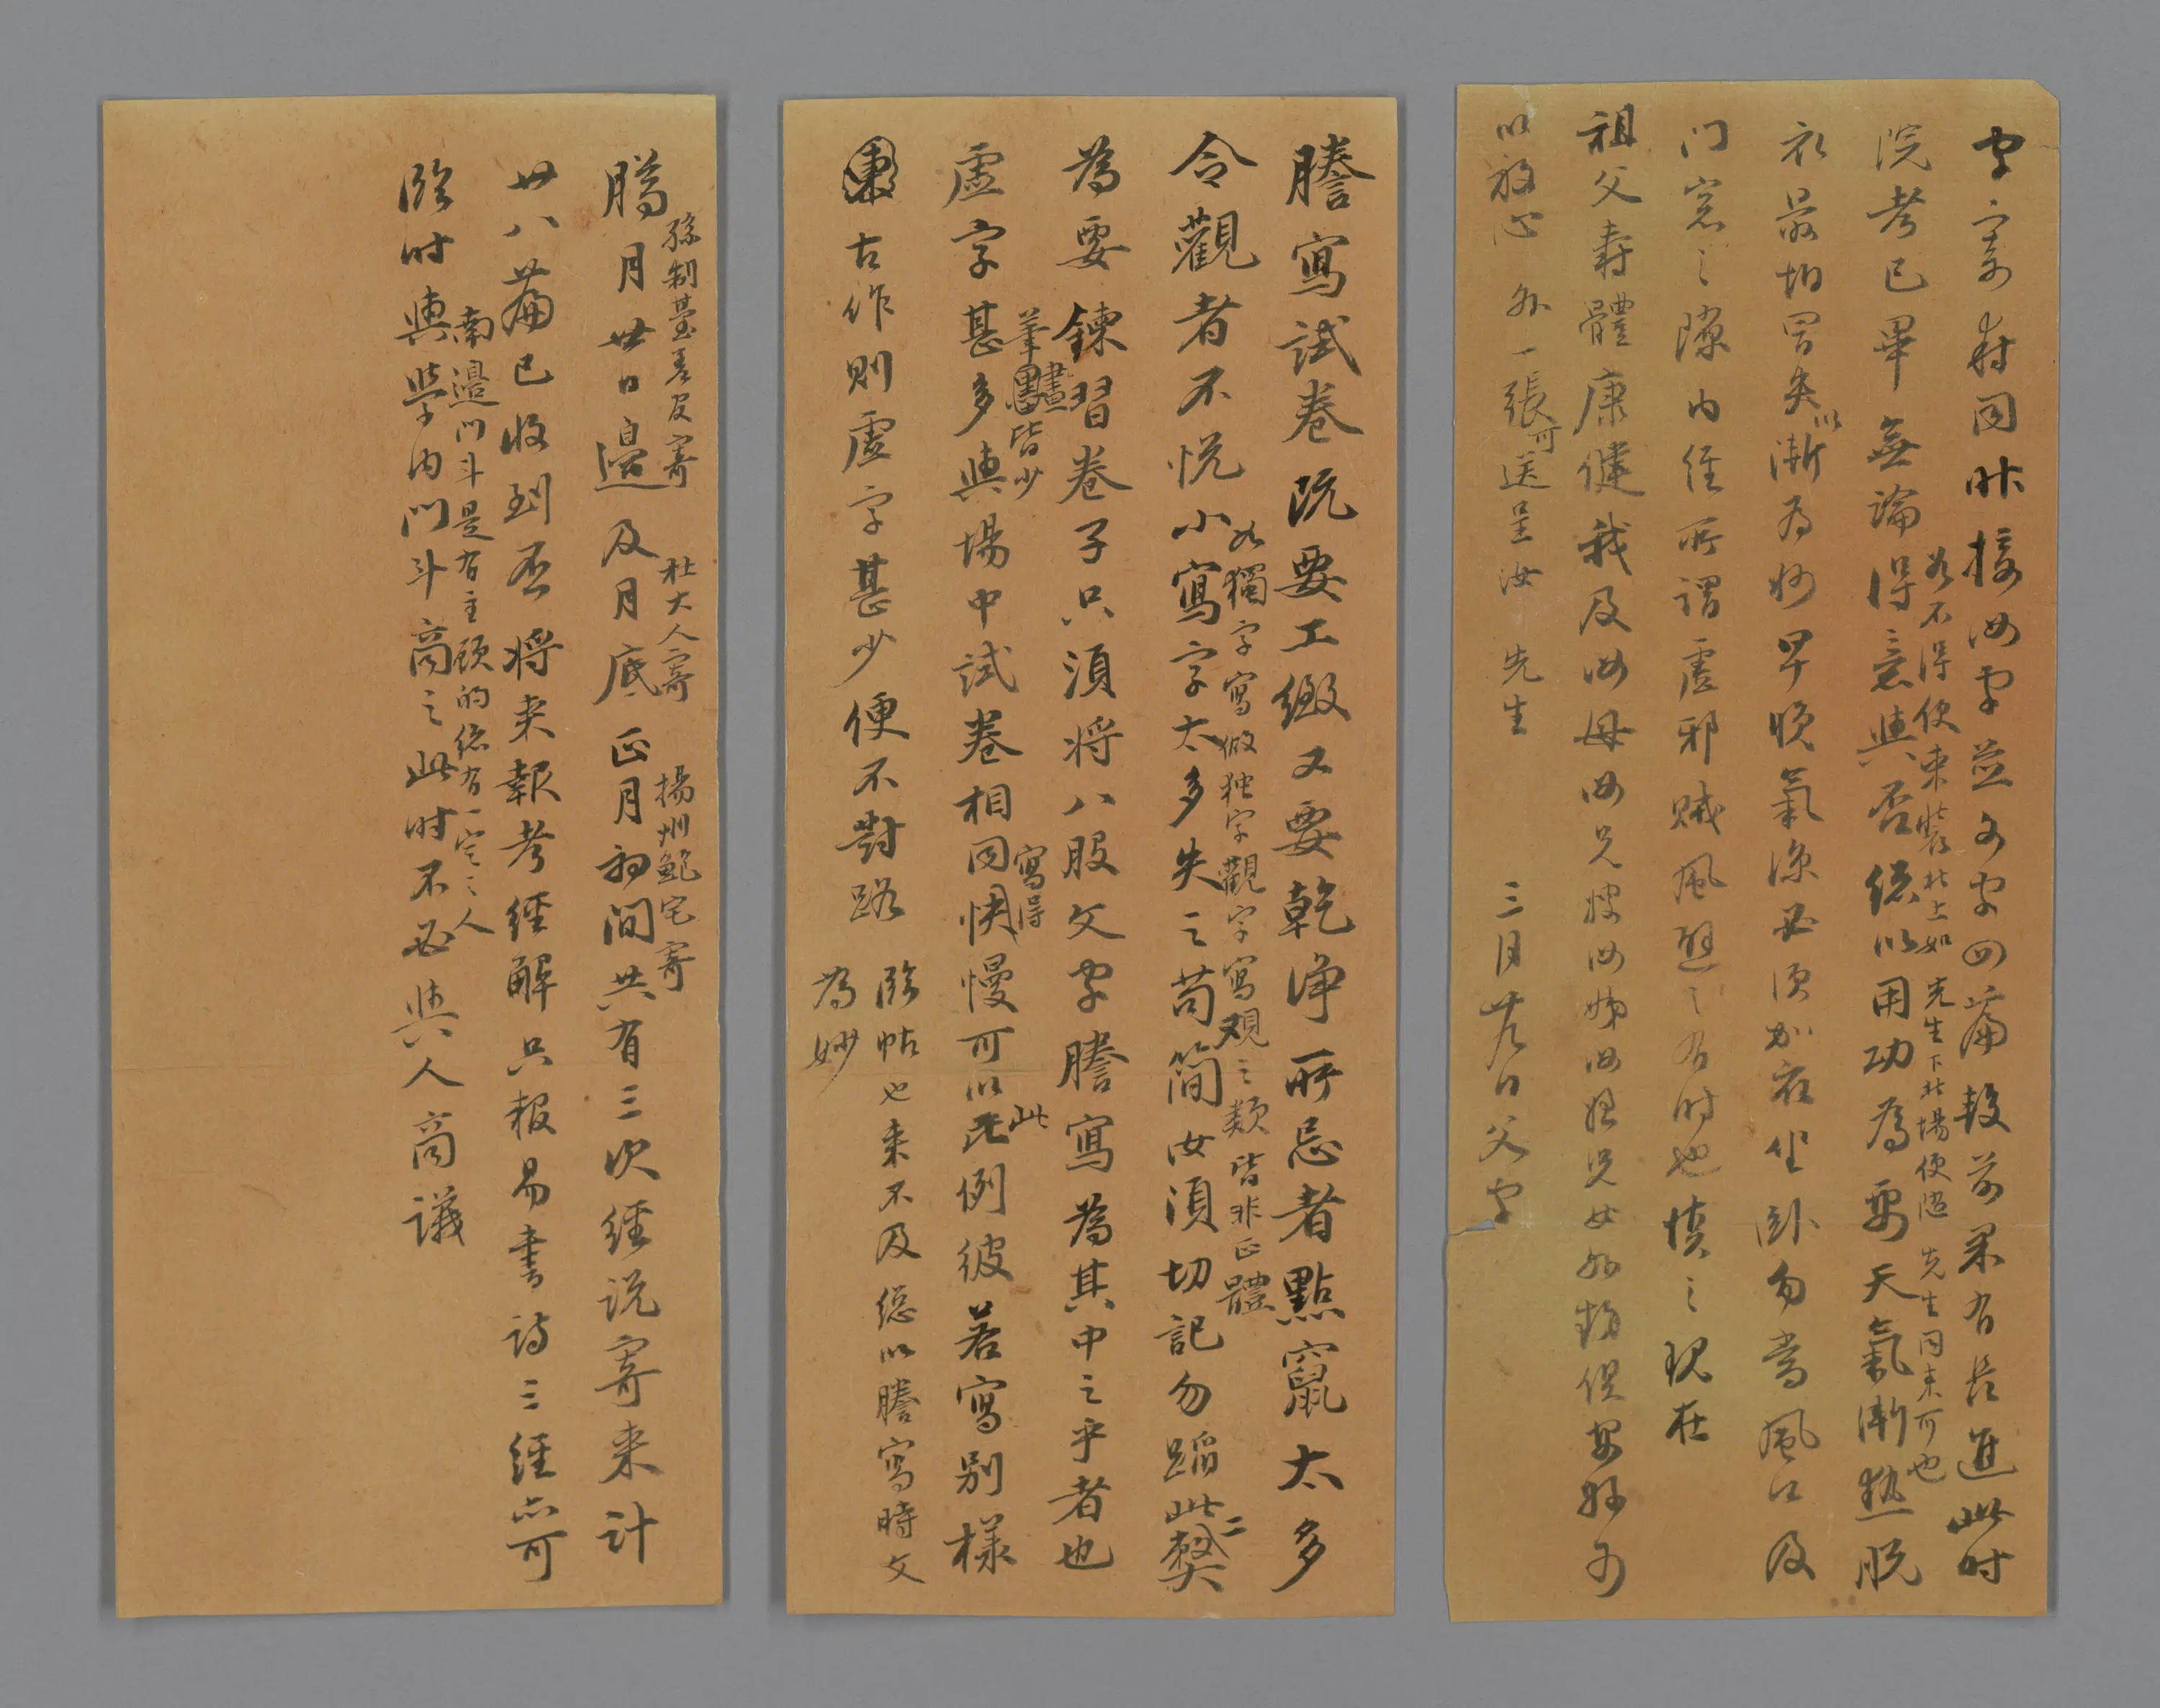 字寄 昨接汝字並文字四篇 前果有長進此時
若不得便來 北上如 先生下北場便隨 先生同來可也
院考已畢無論得意與否總以用功為要天氣漸熱脫
衣最怕冒失以漸為妙早晚氣涼必須加衣坐臥勿當風口及
門窓之隙內經所謂虛邪賊風避之有時也慎之現在
祖父壽體康健我及汝母汝兄嫂汝姊汝姪兒女 俱安好可
以放心 外一張可送呈汝 先生 三月 日父字
謄寫試卷既要工緻又要乾净所忌者點竄太多
如獨字寫做独字觀字寫观之類皆非正體
令觀者不悦小寫字太多失之苟簡汝須切記勿蹈此二弊
為要鍊習卷子只須將八股文字謄寫為其中之乎者也
筆畫皆少 寫得 此
虛字甚多與場中試卷相同快慢可以 例彼若寫別樣
古作則虛字甚少便不對路
臨帖也来不及總以謄寫時文
為妙
孫制臺差皮寄 杜大人寄 揚州鮑宅寄
臈月廿日邊及月底正月初間共有三次經说寄来計
廿八篇已收到否將来報考經解只報易書詩三經亦可
南邊门斗是有主顾的總有一定之人
臨时與学内门斗商之此时不必與人商議